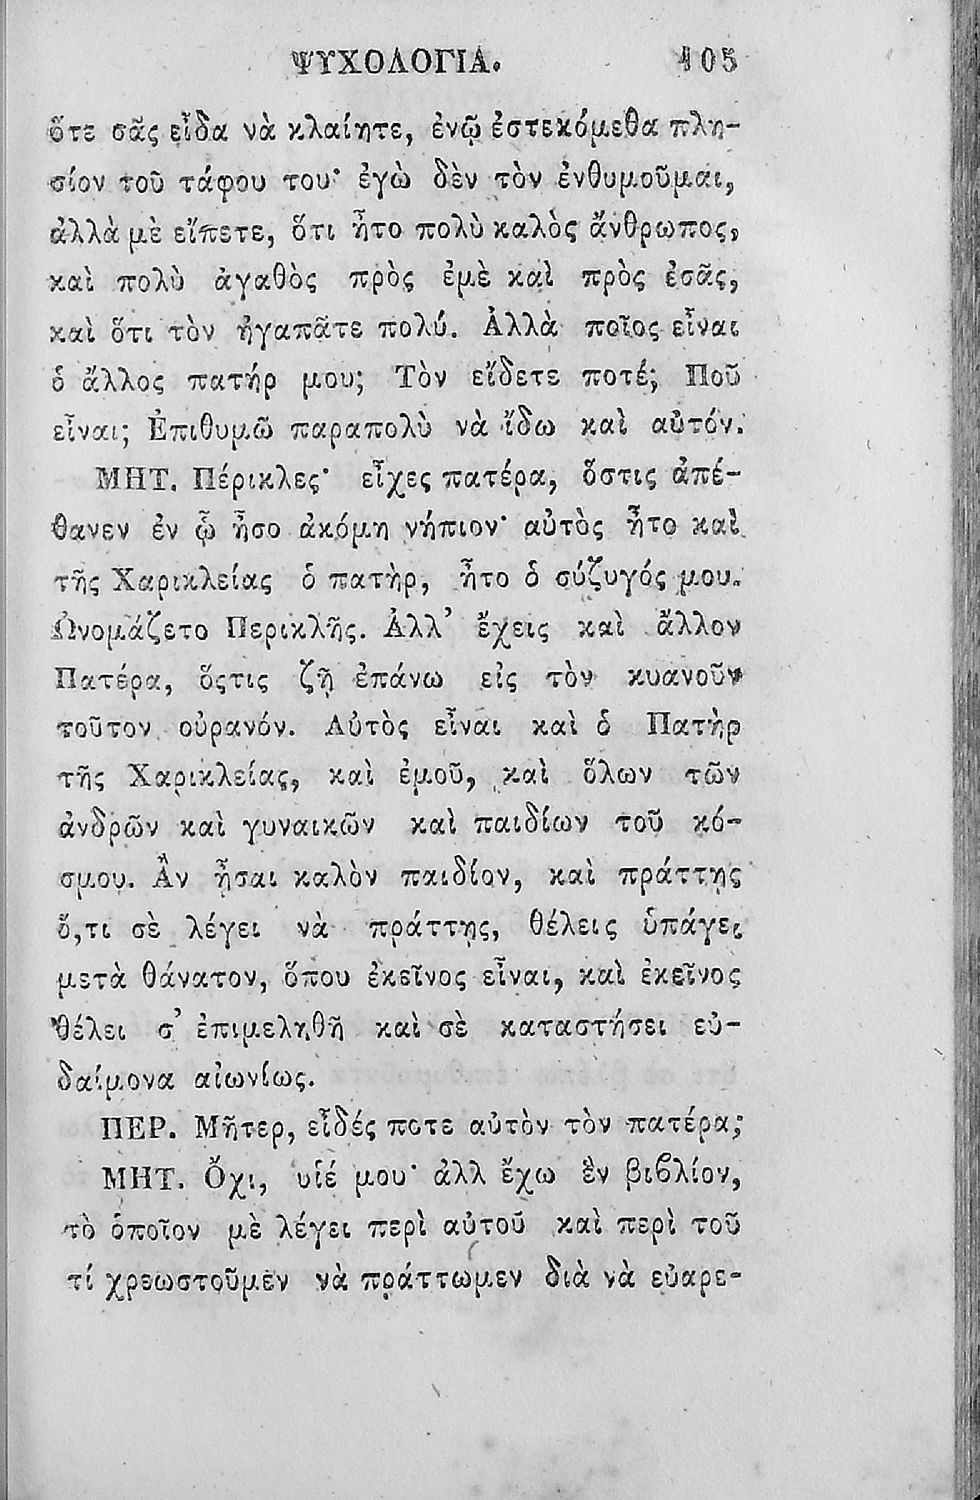 ΨΥΧΟΛΟΓΙΑ. 105
ὅτε σᾶς εἶδα νὰ κλαίητε, ἐνῷ ἐστεκόμεθα πλη-
σίον τοῦ τάφου του· ἐγὼ δὲν τὸν ἐνθυμοῦμαι,
ἀλλὰ μὲ εἴπετε, ὅτι ἦτο πολὺ καλὸς ἄνθρωπος,
καὶ πολὺ ἀγαθὸς πρὸς ἐμὲ καὶ πρὸς ἐσᾶς,
καὶ ὅτι τὸν ἠγαπᾶτε πολύ. Ἀλλὰ ποῖος εἶναι
ὁ ἄλλος πατήρ μου; Τὸν εἴδετε ποτέ; Ποῦ
εἶναι; Ἐπιθυμῶ παραπολὺ νὰ ἴδω καὶ αὐτόν.
ΜΗΤ. Πέρικλες· εἶχες πατέρα, ὅστις ἀπέ-
θανεν ἐν ᾧ ἦσο ἀκόμη νήπιον· αὐτὸς ἦτο καὶ
τῆς Χαρικλείας ὁ πατὴρ, ἦτο ὁ σύζυγός μου.
Ὠνομάζετο Περικλῆς. Ἀλλ᾿ ἔχεις καὶ ἄλλον
Πατέρα, ὅςτις ζῇ ἐπάνω εἰς τὸν κυανοῦν
τοῦτον οὐρανόν. Αὐτὸς εἶναι καὶ ὁ Πατὴρ
τῆς Χαρικλείας, καὶ ἐμοῦ, καὶ ὅλων τῶν
ἀνδρῶν καὶ γυναικῶν καὶ παιδίων τοῦ κό-
σμου. Ἂν ἦσαι καλὸν παιδίον, καὶ πράττῃς
ὅ,τι σὲ λέγει νὰ πράττῃς, θέλεις ὑπάγει
μετὰ θάνατον, ὅπου ἐκεῖνος εἶναι, καὶ ἐκεῖνος
θέλει σ᾿ ἐπιμεληθῆ καὶ σὲ καταστήσει εὐ-
δαίμονα αἰωνίως.
ΠΕΡ. Μῆτερ, εἶδές ποτε αὐτὸν τὸν πατέρα;
ΜΗΤ. Ὄχι, υἱέ μου· ἀλλ ἔχω ἓν βιβλίον,
τὸ ὁποῖον μὲ λέγει περὶ αὐτοῦ καὶ περὶ τοῦ
τί χρεωστοῦμεν νὰ πράττωμεν διὰ νὰ εὐαρε-